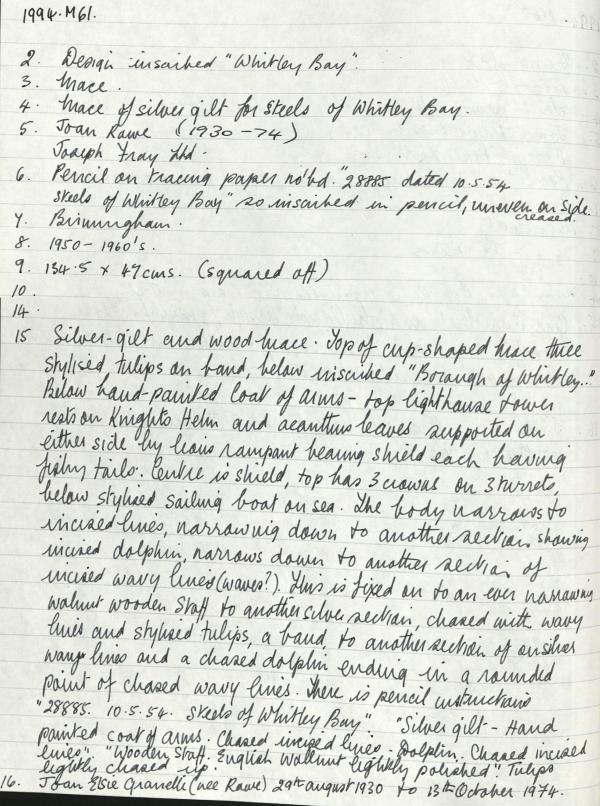 1994.M61.
2. Design inscribed "Whitley Bay".
3. Mace.
4. Mace of silver gilt for Steels of Whitley Bay.
5. Joan Rawe (1930-74)
Joseph Fray Ltd.
6. Pencil on tracing paper no'td. "28885 dated 10.5.54
Steels of Whitley Bay" so inscribed in pencil, uneven on side.
creased.
7. Birmingham.
8. 1950-1960's.
9. 134.5 x 47cms. (squared off)
10.
14.
15 Silver-gilt and wood mace. Top of cup-shaped mace three
stylised tulips on band, below inscribed "Borough of Whitley.."
Below hand-painted Coat of arms - top lighthouse tower
rests on Knights Helm and acanthus leaves supported on
either side by lions rampant bearing shield each having
fishy tails. Centre is shield, top has 3 crowns on 3 turrets,
below stylised sailing boat on sea. The body narrows to
incised lines, narrowing down to another section showing
incised dolphin, narrows down to another section of
incised wavy lines (waves?). This is fixed on to an ever narrowing
walnut wooden staff to another silver section, chased with wavy
lines and stylised tulips, a band to another section of silver
wavy lines and a chased dolphin ending in a rounded
point of chased wavy lines. There is pencil instructions
"28885. 10.5.54. Steels of Whitley Bay" "Silver gilt - Hand
painted coat of arms. Chased incised lines - Dolphin. Chased incised
lines". "Wooden Staff. English Walnut lightly polished" Tulips
lightly chased
16. Joan Elsie Granelli (nee Rawe) 29th August 1930 to 13th October 1974.